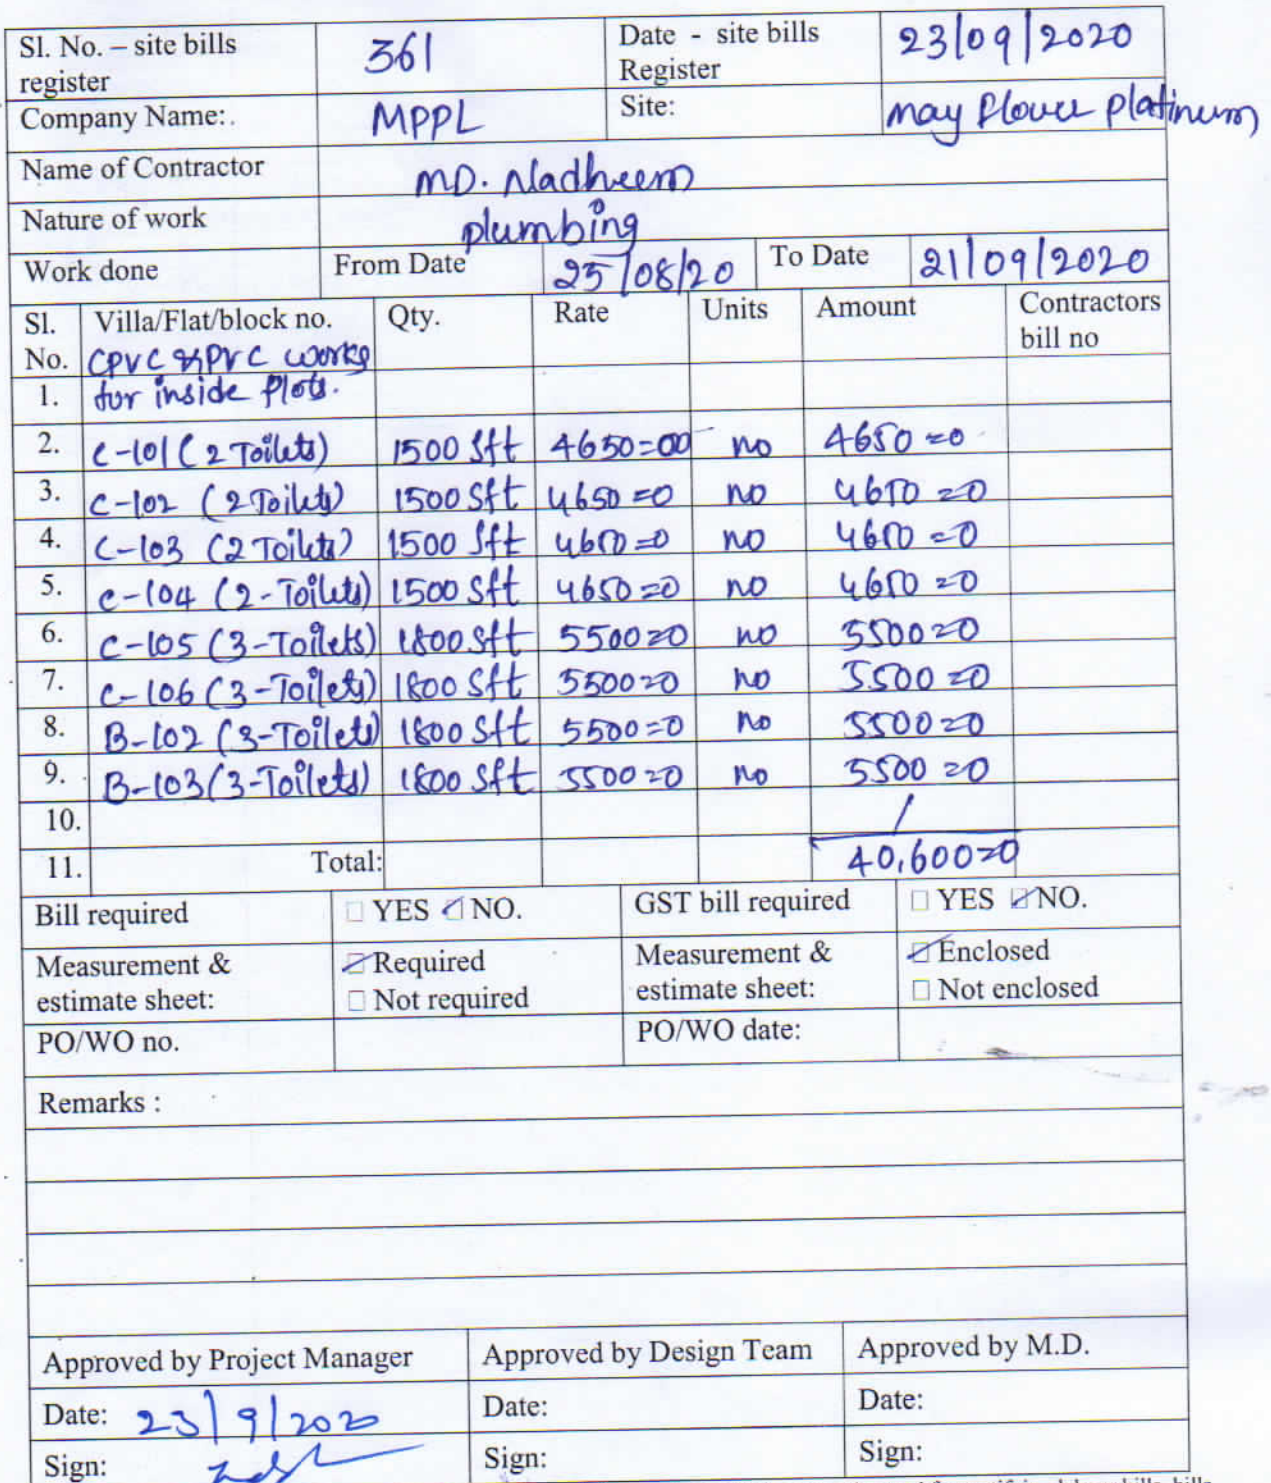 Sl. No. – site bills register 361 Date - site bills Register 23/09/2020
Company Name:. MPPL Site: may flower platinum
Name of Contractor MD. Nadheem
Nature of work plumbing
Work done From Date 25/08/20 To Date 21/09/2020
Sl. No. Villa/Flat/block no. Qty. Rate Units Amount Contractors bill no
CPVC & PVC works
1. for inside flots.
2. C-101 (2 Toilets) 1500 Sft 4650=00 no 4650=0
3. C-102 (2 Toilets) 1500 Sft 4650=0 no 4650=0
4. C-103 (2 Toilets) 1500 Sft 4650=0 no 4650=0
5. C-104 (2-Toilets) 1500 Sft 4650=0 no 4650=0
6. C-105 (3-Toilets) 1800 Sft 5500=0 no 5500=0
7. C-106 (3-Toilets) 1800 Sft 5500=0 no 5500=0
8. B-102 (3-Toilets) 1800 Sft 5500=0 no 5500=0
9. B-103 (3-Toilets) 1800 Sft 5500=0 no 5500=0
10. /
11. Total: 40,600=0
Bill required □ YES ☑ NO. GST bill required □ YES ☑ NO.
Measurement & estimate sheet: ☑ Required □ Not required Measurement & estimate sheet: ☑ Enclosed □ Not enclosed
PO/WO no. PO/WO date:
Remarks :
Approved by Project Manager Approved by Design Team Approved by M.D.
Date: 23/9/2020 Date: Date:
Sign: Sign: Sign: